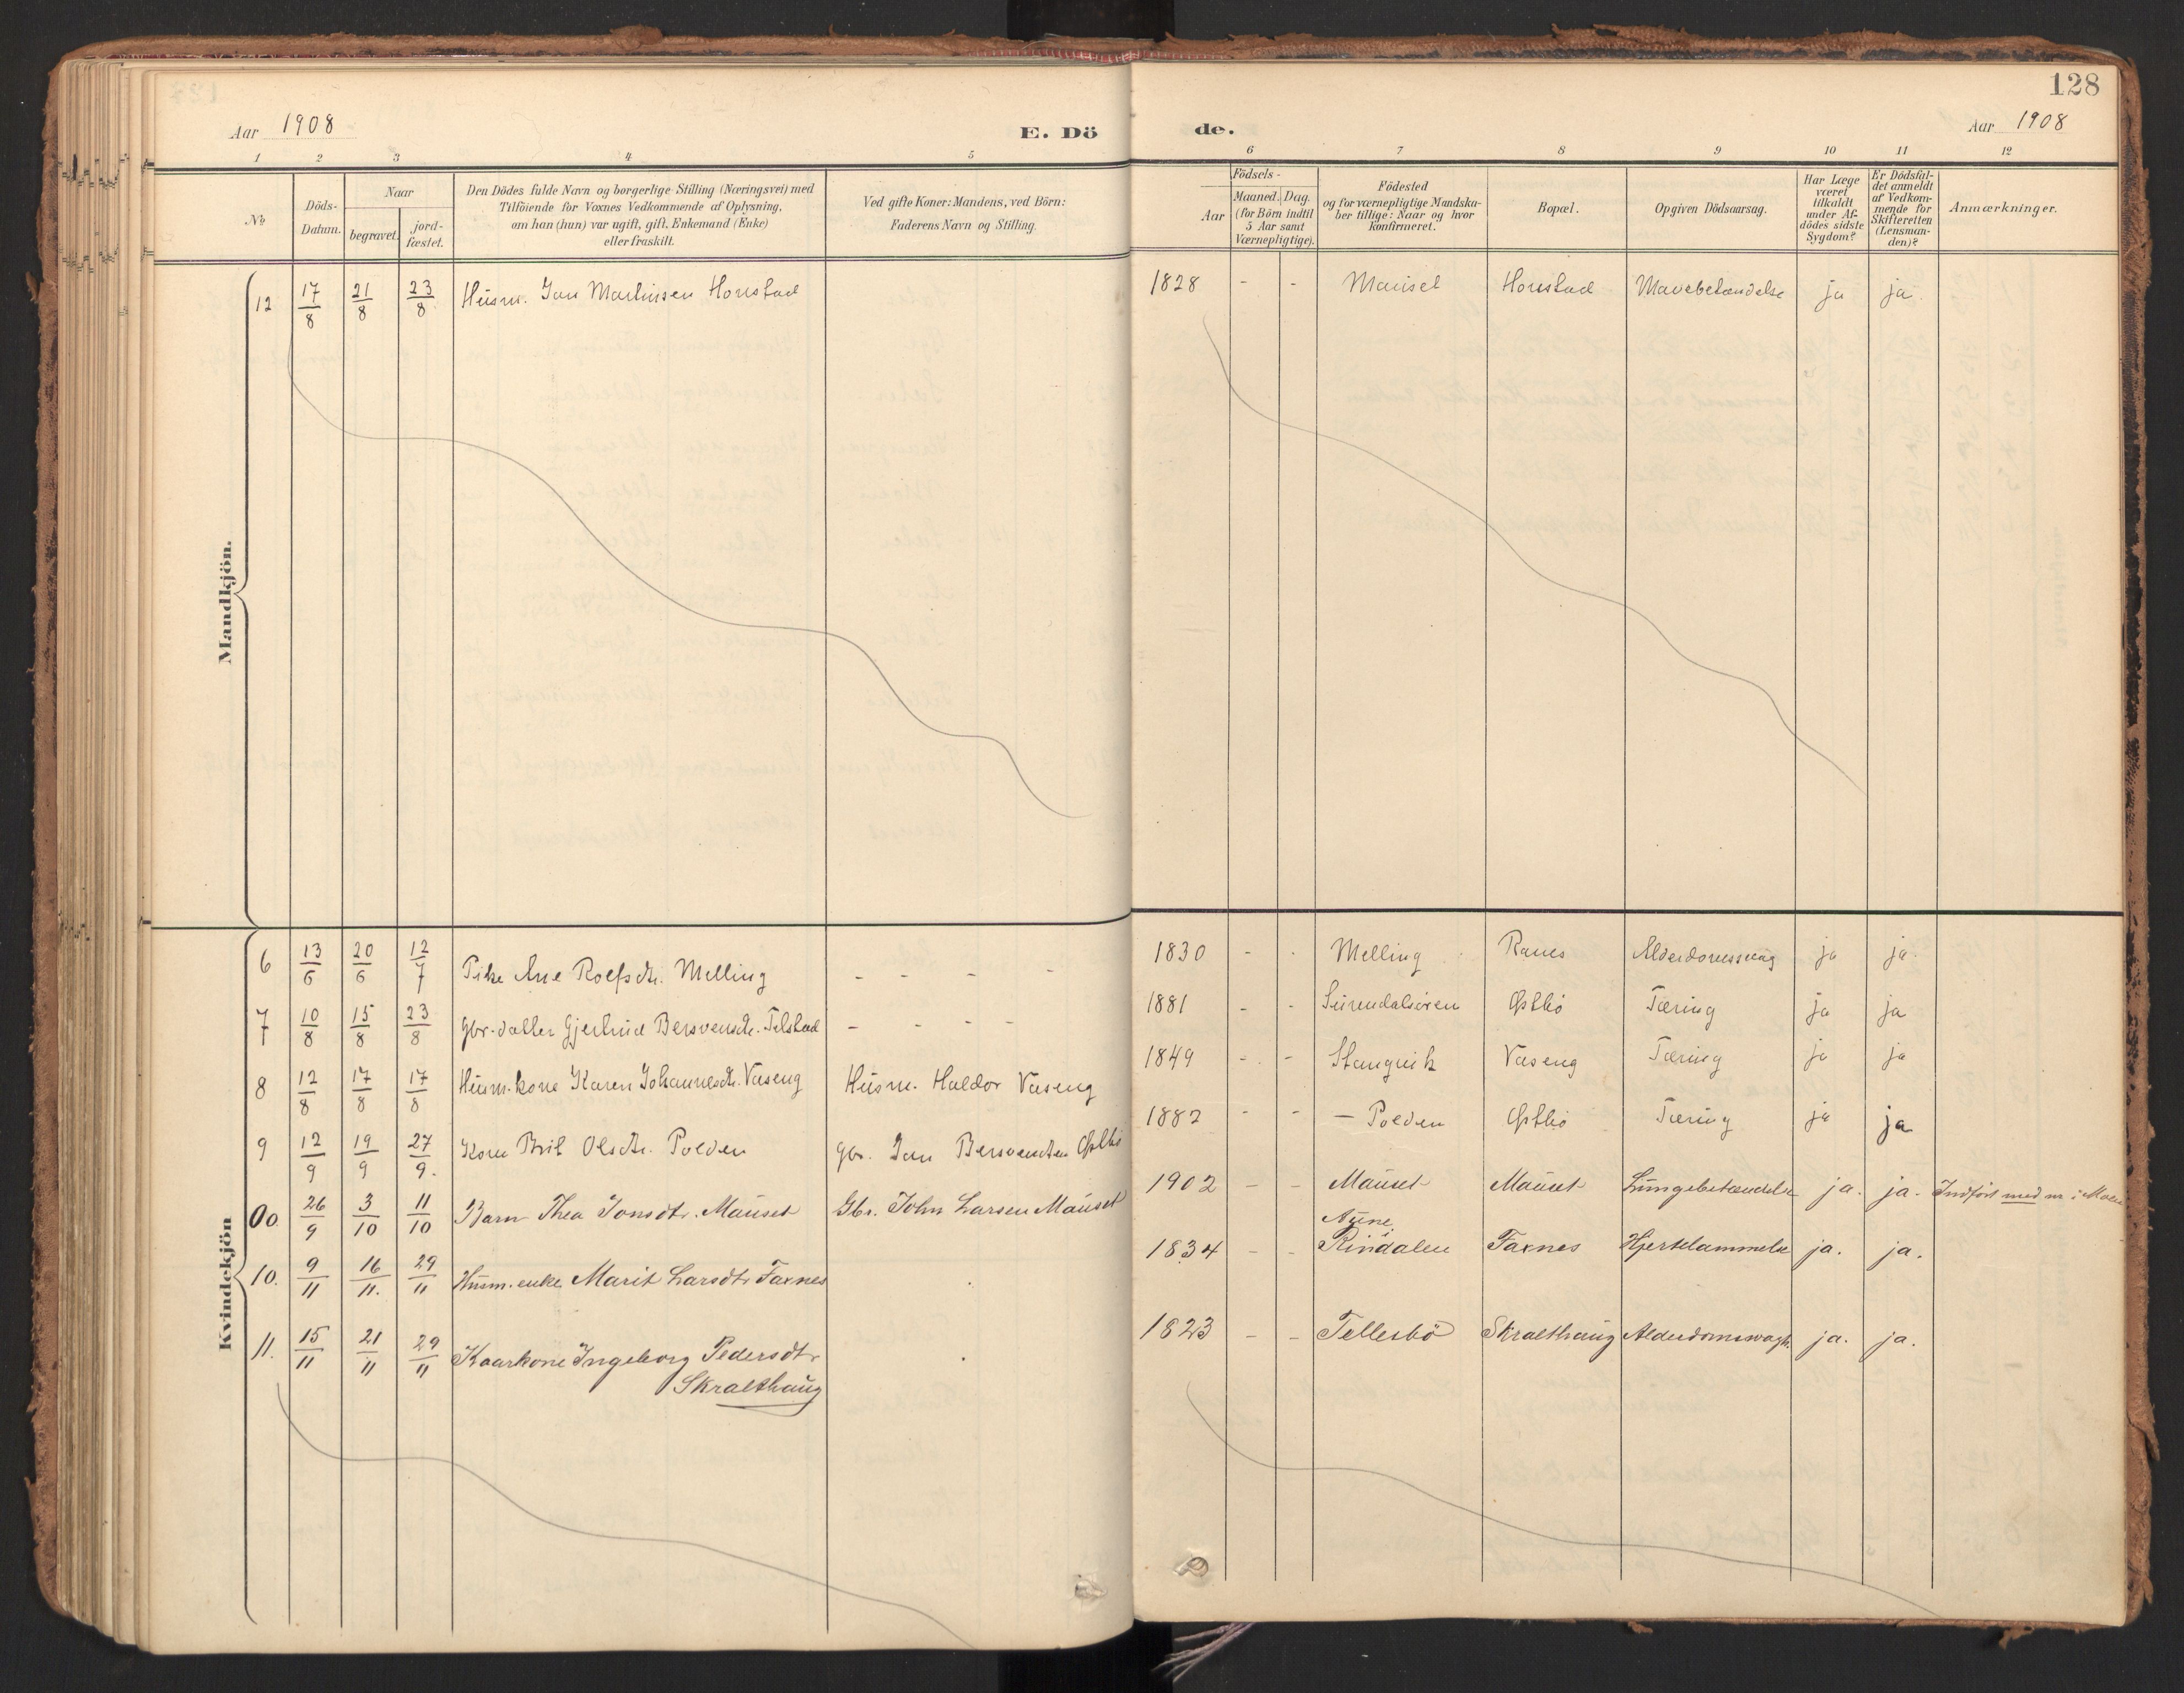 128
Aar 1908
E. Döde.
Aar 1908
1 2 3 4 5 6 7 8 9 10 11 12
No.
Döds-Datum.
Naar
begravet.
jord-fæstet.
Den Dödes fulde Navn og borgerlige Stilling (Næringsvei) med
Tilföiende for Voxnes Vedkommende af Oplysning,
om han (hun) var ugift, gift, Enkemand (Enke)
eller fraskilt.
Ved gifte Koner: Mandens, ved Börn:
Faderens Navn og Stilling.
Födsels-
Aar
Maaned. Dag.
(for Börn indtil
5 Aar samt
Værnepligtige).
Födested
og for værnepligtige Mandska-
ber tillige: Naar og hvor
Konfirmeret.
Bopæl.
Opgiven Dödsaarsag.
Har Læge
været
tilkaldt
under Af-
dödes sidste
Sygdom?
Er Dödsfal-
det anmeldt
af Vedkom-
mende for
Skifteretten
(Lensman-
den)?
Anmærkninger.
Mandkjön.
12 17/8 21/8 23/8 Husm. Jon Martinsen Honstad 1828 - - Mauset Honstad Mavebetændelse ja ja.
Kvindekjön
6 13/6 20/6 12/7 Pike Ane Roefsdtr. Melling - - - - 1830 - - Melling Ranes Alderdomssvag ja ja.
7 10/8 15/8 23/8 Gbr.datter Gjertrud Bersvensdtr. Telstad - - - - 1881 - - Surendalsören Østbö Tæring ja ja
8 12/8 17/8 17/8 Husm.kone Karen Johannesdtr. Våseng Husm. Haldor Våseng 1849 - - Stangvik Våseng Tæring ja ja
9 12/9 19/9 27/9. Kone Brit Olsdtr. Polden gbr. Jon Bersvendsen Østbö 1882 - - - Polden Østbö Tæring ja ja
00. 26/9 3/10 11/10 Barn Thea Jonsdtr. Mauset Gbr. John Larsen Mauset 1902 - - Mauset Mauset Lungebetændelse ja. ja. Indfört med nr. i Moen
10. 9/11 16/11. 29/11 Husm.enke Marit Larsdtr Faxnes 1834 - - Rindalen Faxnes Hjertelammelse ja. ja.
11. 15/11 21/11 29/11 Kaarkone Ingeborg Pedersdtr
Skralthaug 1823 - - Tellesbö Skralthaug Alderdomsvagh. ja. ja.